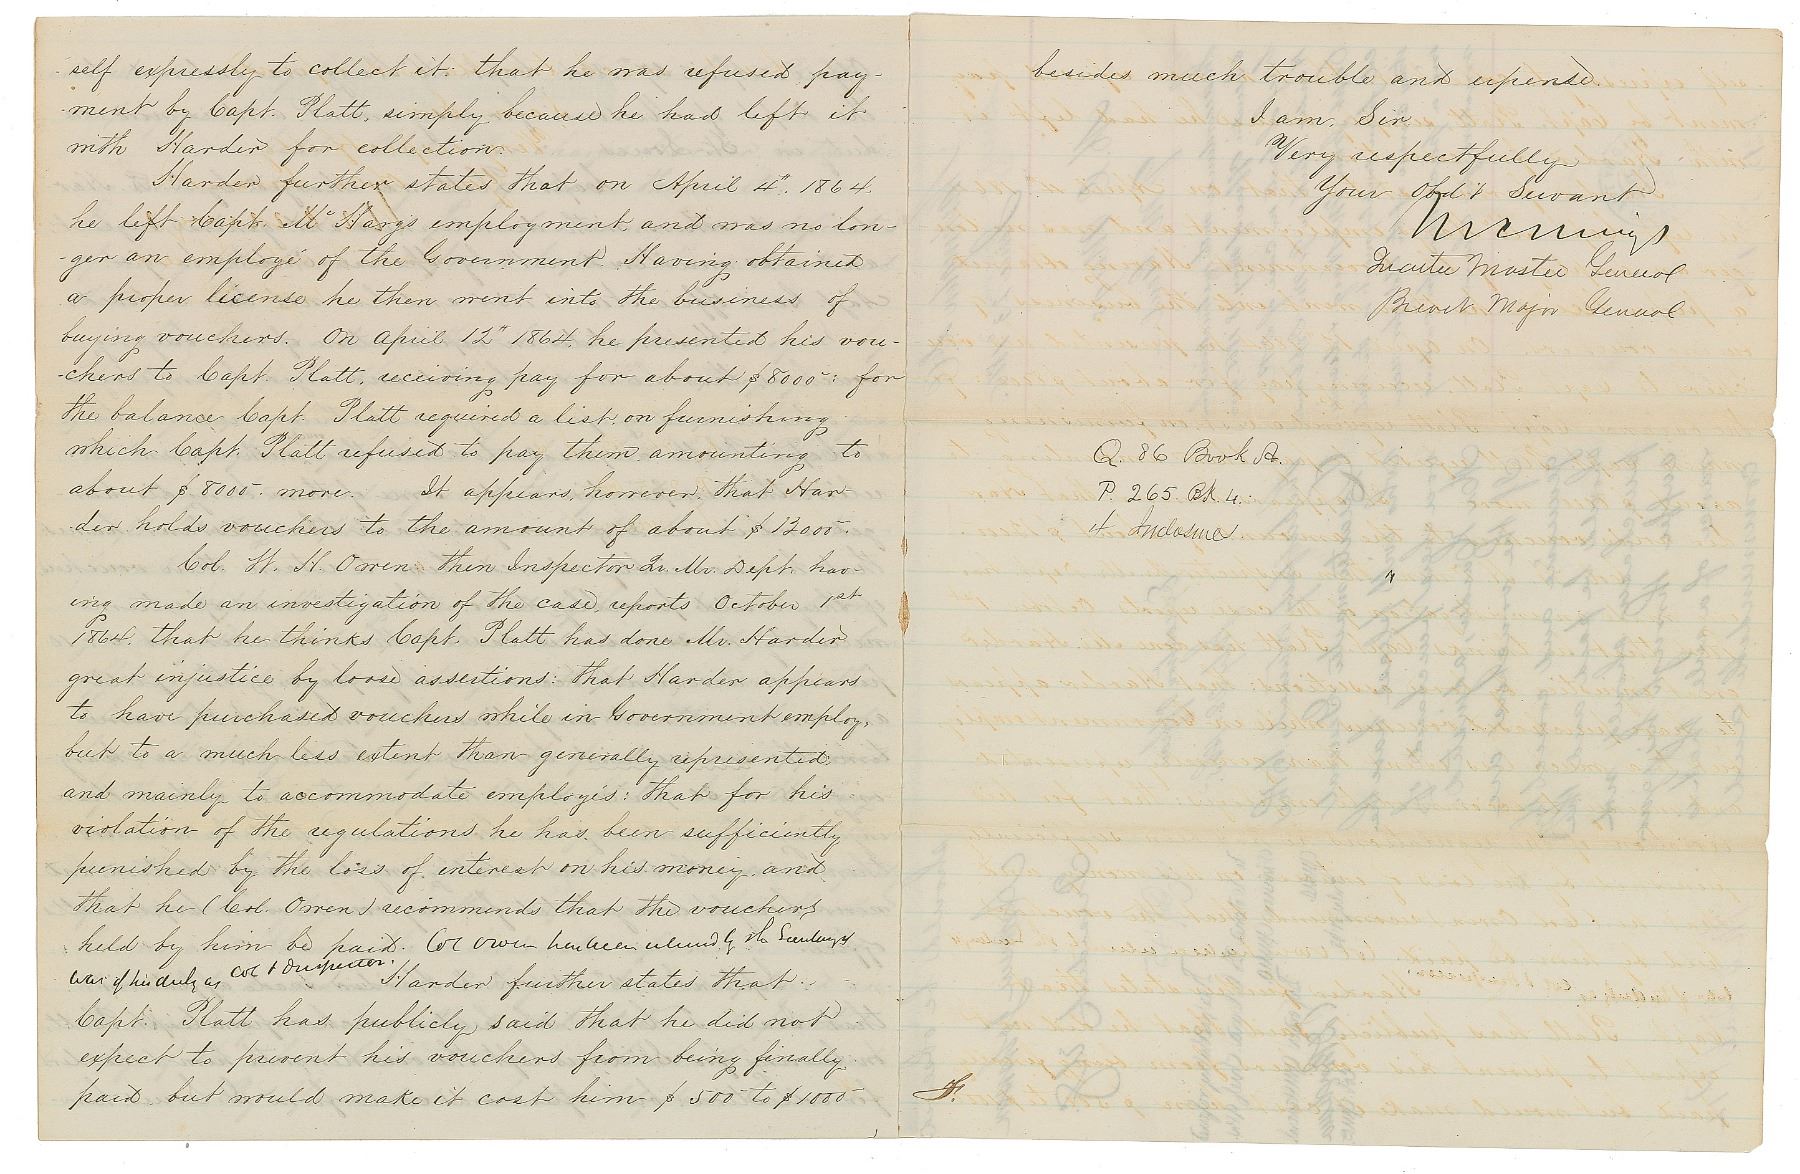 self expressly to collect it: that he was refused pay-
-ment by Capt. Platt, simply because he had left it
with Harder for collection.
Harder further states that on April 4", 1864.
he left Capt. Mc Harg's employment, and was no lon-
-ger an employé of the Government. Having obtained
a proper license he then went into the business of
buying vouchers. On April 12" 1864, he presented his vou-
-chers to Capt. Platt, receiving pay for about $8000-: for
the balance Capt. Platt required a list, on furnishing
which Capt. Platt refused to pay them, amounting to
about $8000- more. It appears, however, that Har-
-der holds vouchers to the amount of about $12000-.
Col. W. H. Owen then Inspector Qr. Mr. Dept. hav-
ing made an investigation of the case, reports October 1st
1864. that he thinks Capt. Platt has done Mr. Harder
great injustice by loose assertions: that Harder appears
to have purchased vouchers while in Government employ,
but to a much less extent than generally represented,
and mainly to accommodate employés: that for his
violation of the regulations he has been sufficiently
punished by the loss of interest on his money, and
that he (Col. Owen) recommends that the vouchers
held by him be paid. Col Owen has been relieved by the Secretary of
War of his duty as Col & Inspector.
Harder further states that
Capt. Platt has publicly said that he did not
expect to prevent his vouchers from being finally
paid, but would make it cost him $500 to $1000-
besides much trouble and expense.
I am, Sir,
Very respectfully
Your Obd't Servant
Quarter Master General
Brevet Major General
Q. 86 Book A.
P. 265 Bk 4.
4 Inclosures
F.